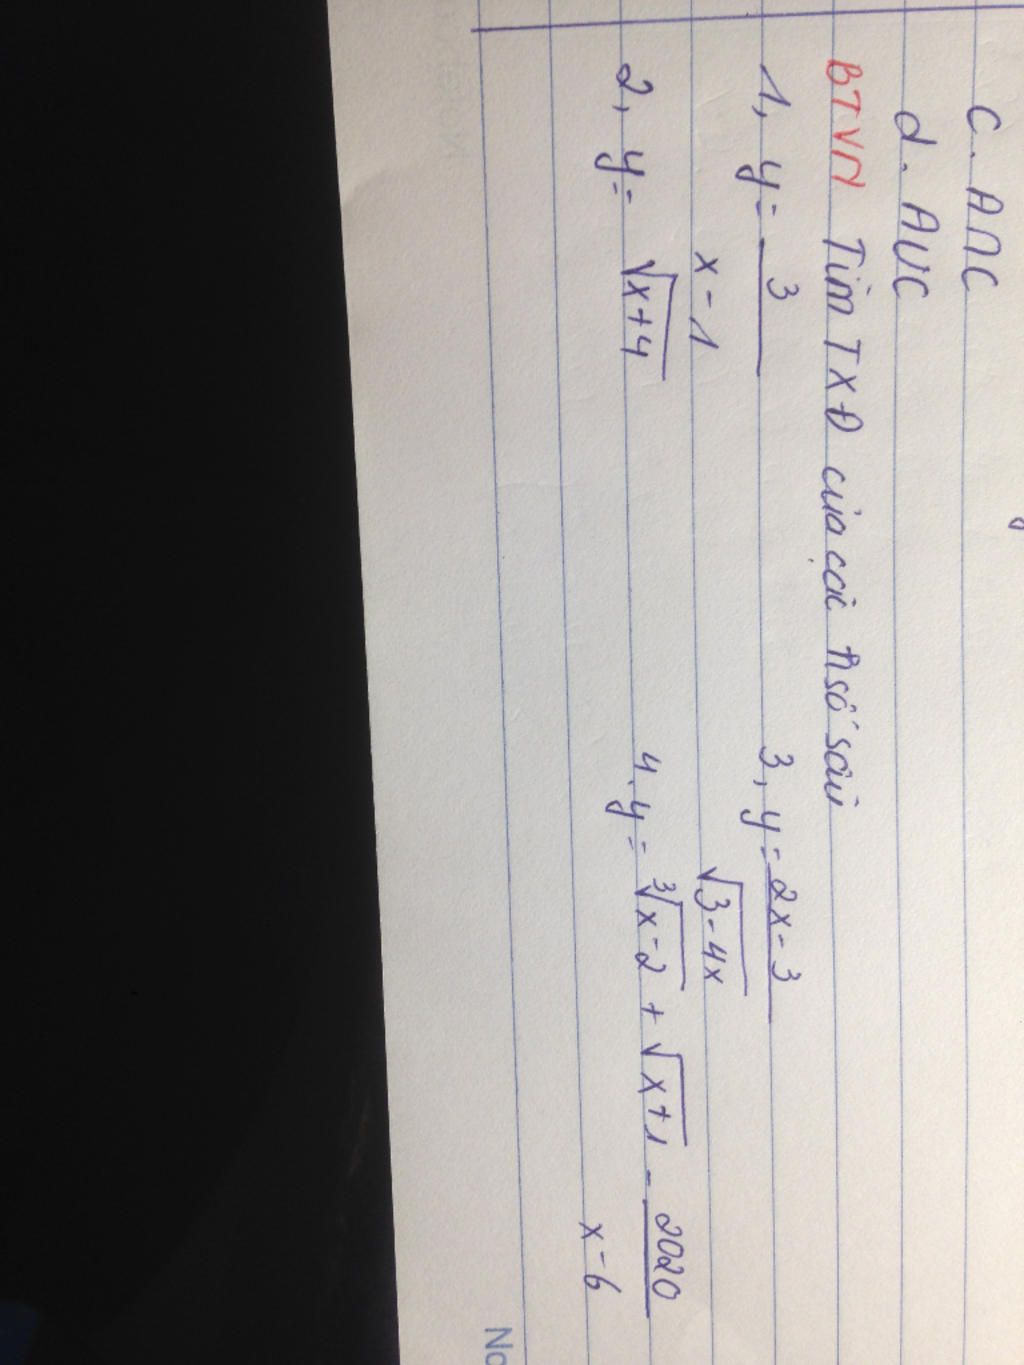 c. A∩C
d. A∪C
BTVN Tìm TXĐ của các h số sau
1, y = 3 / x - 1
3, y = 2x - 3 / √(3 - 4x)
2, y = √(x+4)
4. y = ∛(x - 2) + √(x+1) - 2020 / x - 6
No